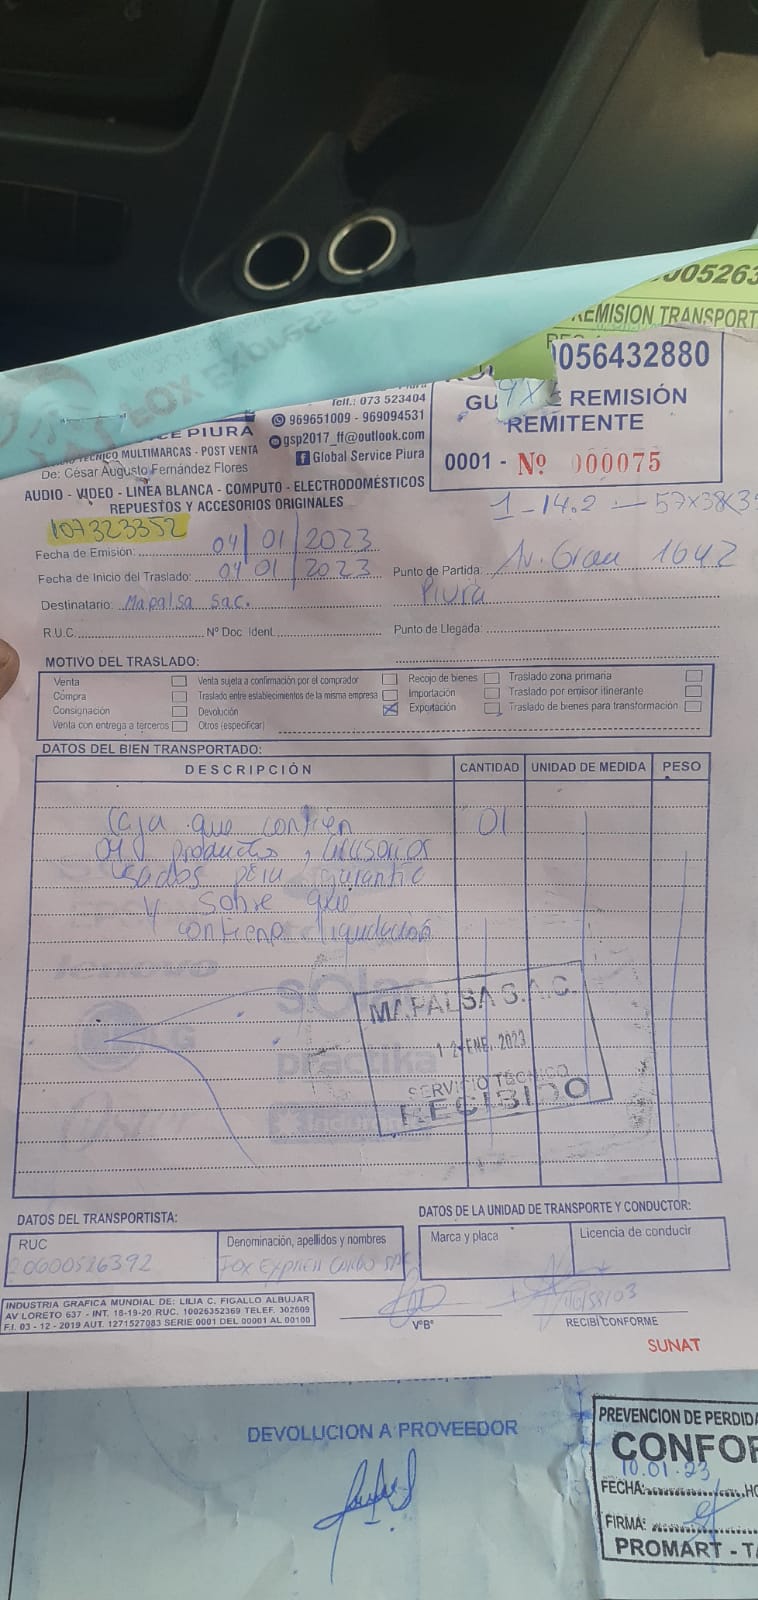 005263
REMISION TRANSPORT
FOX Express
056432880
Telf.: 073 523404
969651009 - 969094531
gsp2017_ff@outlook.com
Global Service Piura
REMISIÓN
REMITENTE
0001 - Nº 000075
PIURA
TÉCNICO MULTIMARCAS - POST VENTA
De: César Augusto Fernández Flores
AUDIO - VIDEO - LINEA BLANCA - COMPUTO - ELECTRODOMÉSTICOS
REPUESTOS Y ACCESORIOS ORIGINALES
1-14.2 - 57x38x3
107323352
Fecha de Emisión: 04 / 01 / 2023
Fecha de Inicio del Traslado: 04 01 / 2023
Punto de Partida: Av. Grau 1642
Piura
Destinatario: Mapalsa sac.
R.U.C. Nº Doc Ident.
Punto de Llegada:
MOTIVO DEL TRASLADO:
Venta
Compra
Consignación
Venta con entrega a terceros
Venta sujeta a confirmación por el comprador
Traslado entre establecimientos de la misma empresa
Devolución
Otros (especificar)
Recojo de bienes
Importación
Exportación
Traslado zona primaria
Traslado por emisor itinerante
Traslado de bienes para transformación
DATOS DEL BIEN TRANSPORTADO:
DESCRIPCIÓN CANTIDAD UNIDAD DE MEDIDA PESO
Caja que contien 01
productos
usados
y sobre que
contiene liquidación
lenovo
LG
sole
practika
Oster
Indurama
MAPALSA S.A.C.
12 ENE. 2023
SERVICIO TECNICO
RECIBIDO
DATOS DEL TRANSPORTISTA:
RUC
20600526392
Denominación, apellidos y nombres
Fox Express
DATOS DE LA UNIDAD DE TRANSPORTE Y CONDUCTOR:
Marca y placa
Licencia de conducir
INDUSTRIA GRAFICA MUNDIAL DE: LILIA C. FIGALLO ALBUJAR
AV LORETO 637 - INT. 18-19-20 RUC. 10026352369 TELEF. 302609
F.I. 03 - 12 - 2019 AUT. 1271527083 SERIE 0001 DEL 00001 AL 00100
VºBº
RECIBI CONFORME
SUNAT
DEVOLUCION A PROVEEDOR
PREVENCION DE PERDIDA
CONFOR
10.01.23
FECHA: HO
FIRMA:
PROMART - TA